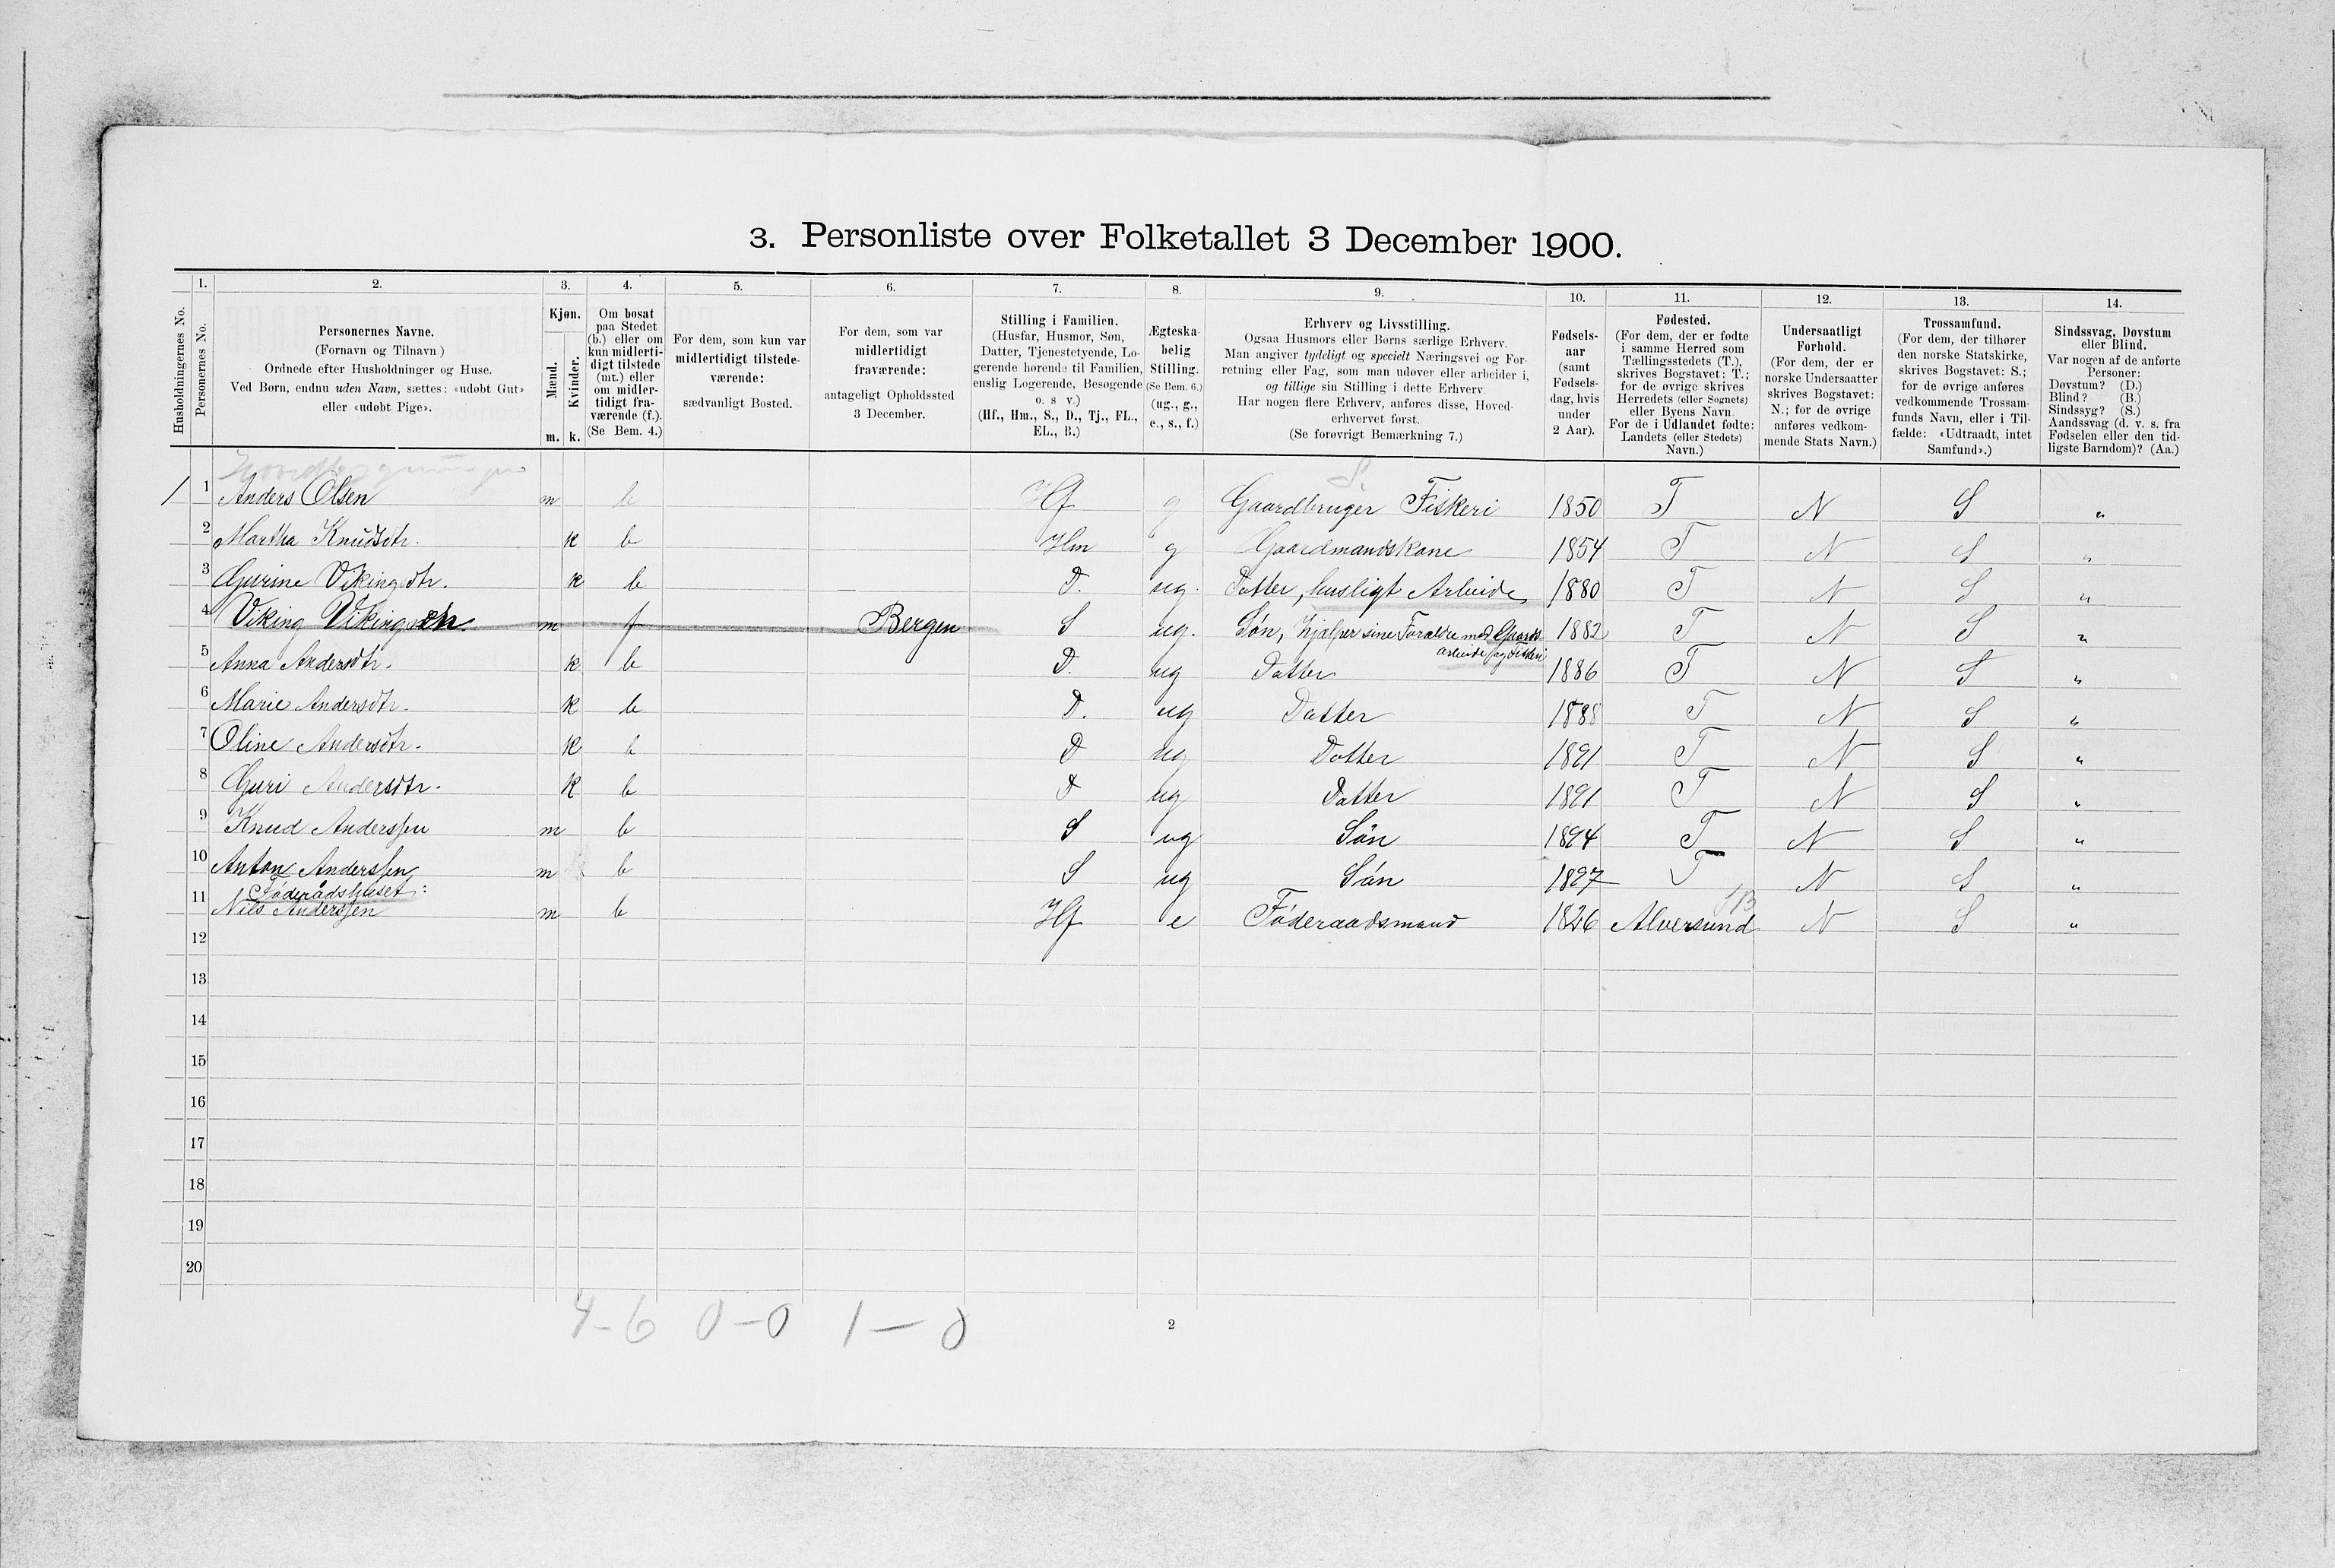 3. Personliste over Folketallet 3 December 1900.
Husholdningernes No.
1.
Personernes No.
2.
Personernes Navne.
(Fornavn og Tilnavn)
Ordnede efter Husholdninger og Huse.
Ved Børn, endnu uden Navn, sættes: «udøbt Gut»
eller «udøbt Pige».
3.
Kjøn.
Mænd.
Kvinder.
m. k.
4.
Om bosat
paa Stedet
(b.) eller om
kun midlerti-
digt tilstede
(mt.) eller
om midler-
tidigt fra-
værende (f.).
(Se Bem. 4.)
5.
For dem, som kun var
midlertidigt tilstede-
værende:
sædvanligt Bosted.
6.
For dem, som var
midlertidigt
fraværende:
antageligt Opholdssted
3 December.
7.
Stilling i Familien.
(Husfar, Husmor, Søn,
Datter, Tjenestetyende, Lo-
gerende hørende til Familien,
enslig Logerende, Besøgende
o. s v.)
(Hf., Hm., S., D., Tj., FL.,
EL., B.)
8.
Ægteska-
belig
Stilling.
(Se Bem. 6.)
(ug., g.,
e., s., f.)
9.
Erhverv og Livsstilling.
Ogsaa Husmors eller Børns særlige Erhverv.
Man angiver tydeligt og specielt Næringsvei og For-
retning eller Fag, som man udøver eller arbeider i,
og tillige sin Stilling i dette Erhverv.
Har nogen flere Erhverv, anføres disse, Hoved-
erhvervet først.
(Se forøvrigt Bemærkning 7.)
10.
Fødsels-
aar
(samt
Fødsels-
dag, hvis
under
2 Aar).
11.
Fødested.
(For dem, der er fødte
i samme Herred som
Tællingsstedets (T.),
skrives Bogstavet: T.;
for de øvrige skrives
Herredets (eller Sognets)
eller Byens Navn.
For de i Udlandet fødte:
Landets (eller Stedets)
Navn.)
12.
Undersaatligt
Forhold.
(For dem, der er
norske Undersaatter
skrives Bogstavet:
N.; for de øvrige
anføres vedkom-
mende Stats Navn.)
13.
Trossamfund.
(For dem, der tilhører
den norske Statskirke,
skrives Bogstavet: S.;
for de øvrige anføres
vedkommende Trossam-
funds Navn, eller i Til-
fælde: «Udtraadt, intet
Samfund».)
14.
Sindssvag, Døvstum
eller Blind.
Var nogen af de anførte
Personer:
Døvstum? (D.)
Blind? (B.)
Sindssyg? (S.)
Aandssvag (d. v. s. fra
Fødselen eller den tid-
ligste Barndom)? (Aa.)
S.
1 1 Anders Olsen m b Hf g Gaardbruger Fiskeri 1850 T N S "
2 Martha Knudsdtr. k b Hm g Gaardmandskone 1854 T N S "
3 Gurine Vikingsdtr. k b D. ug. Datter, husligt Arbeide 1880 T N S "
4 Viking Vikingsen m f Bergen S ug. Søn, Hjælper sine Forældre med Gaards 1882 T N S "
arbeide og Fiskeri
5 Anna Andersdtr. k b D. ug Datter 1886 T N S "
6 Marie Andersdtr. k b D. ug Datter 1888 T N S "
7 Oline Andersdtr. k b D ug Datter 1891 T N S "
8 Guri Andersdtr. k b D ug Datter 1891 T N S "
9 Knud Anderssen m b S ug Sön 1894 T N S "
10 Anton Anderssen m b S ug Sön 1897 T N S "
Föderådshuset:
11 Nils Anderssen m b Hf e Föderaadsmand 1826 Alversund N S "
12
13
14
15
16
17
18
19
20
4-6 0-0 1-0
2